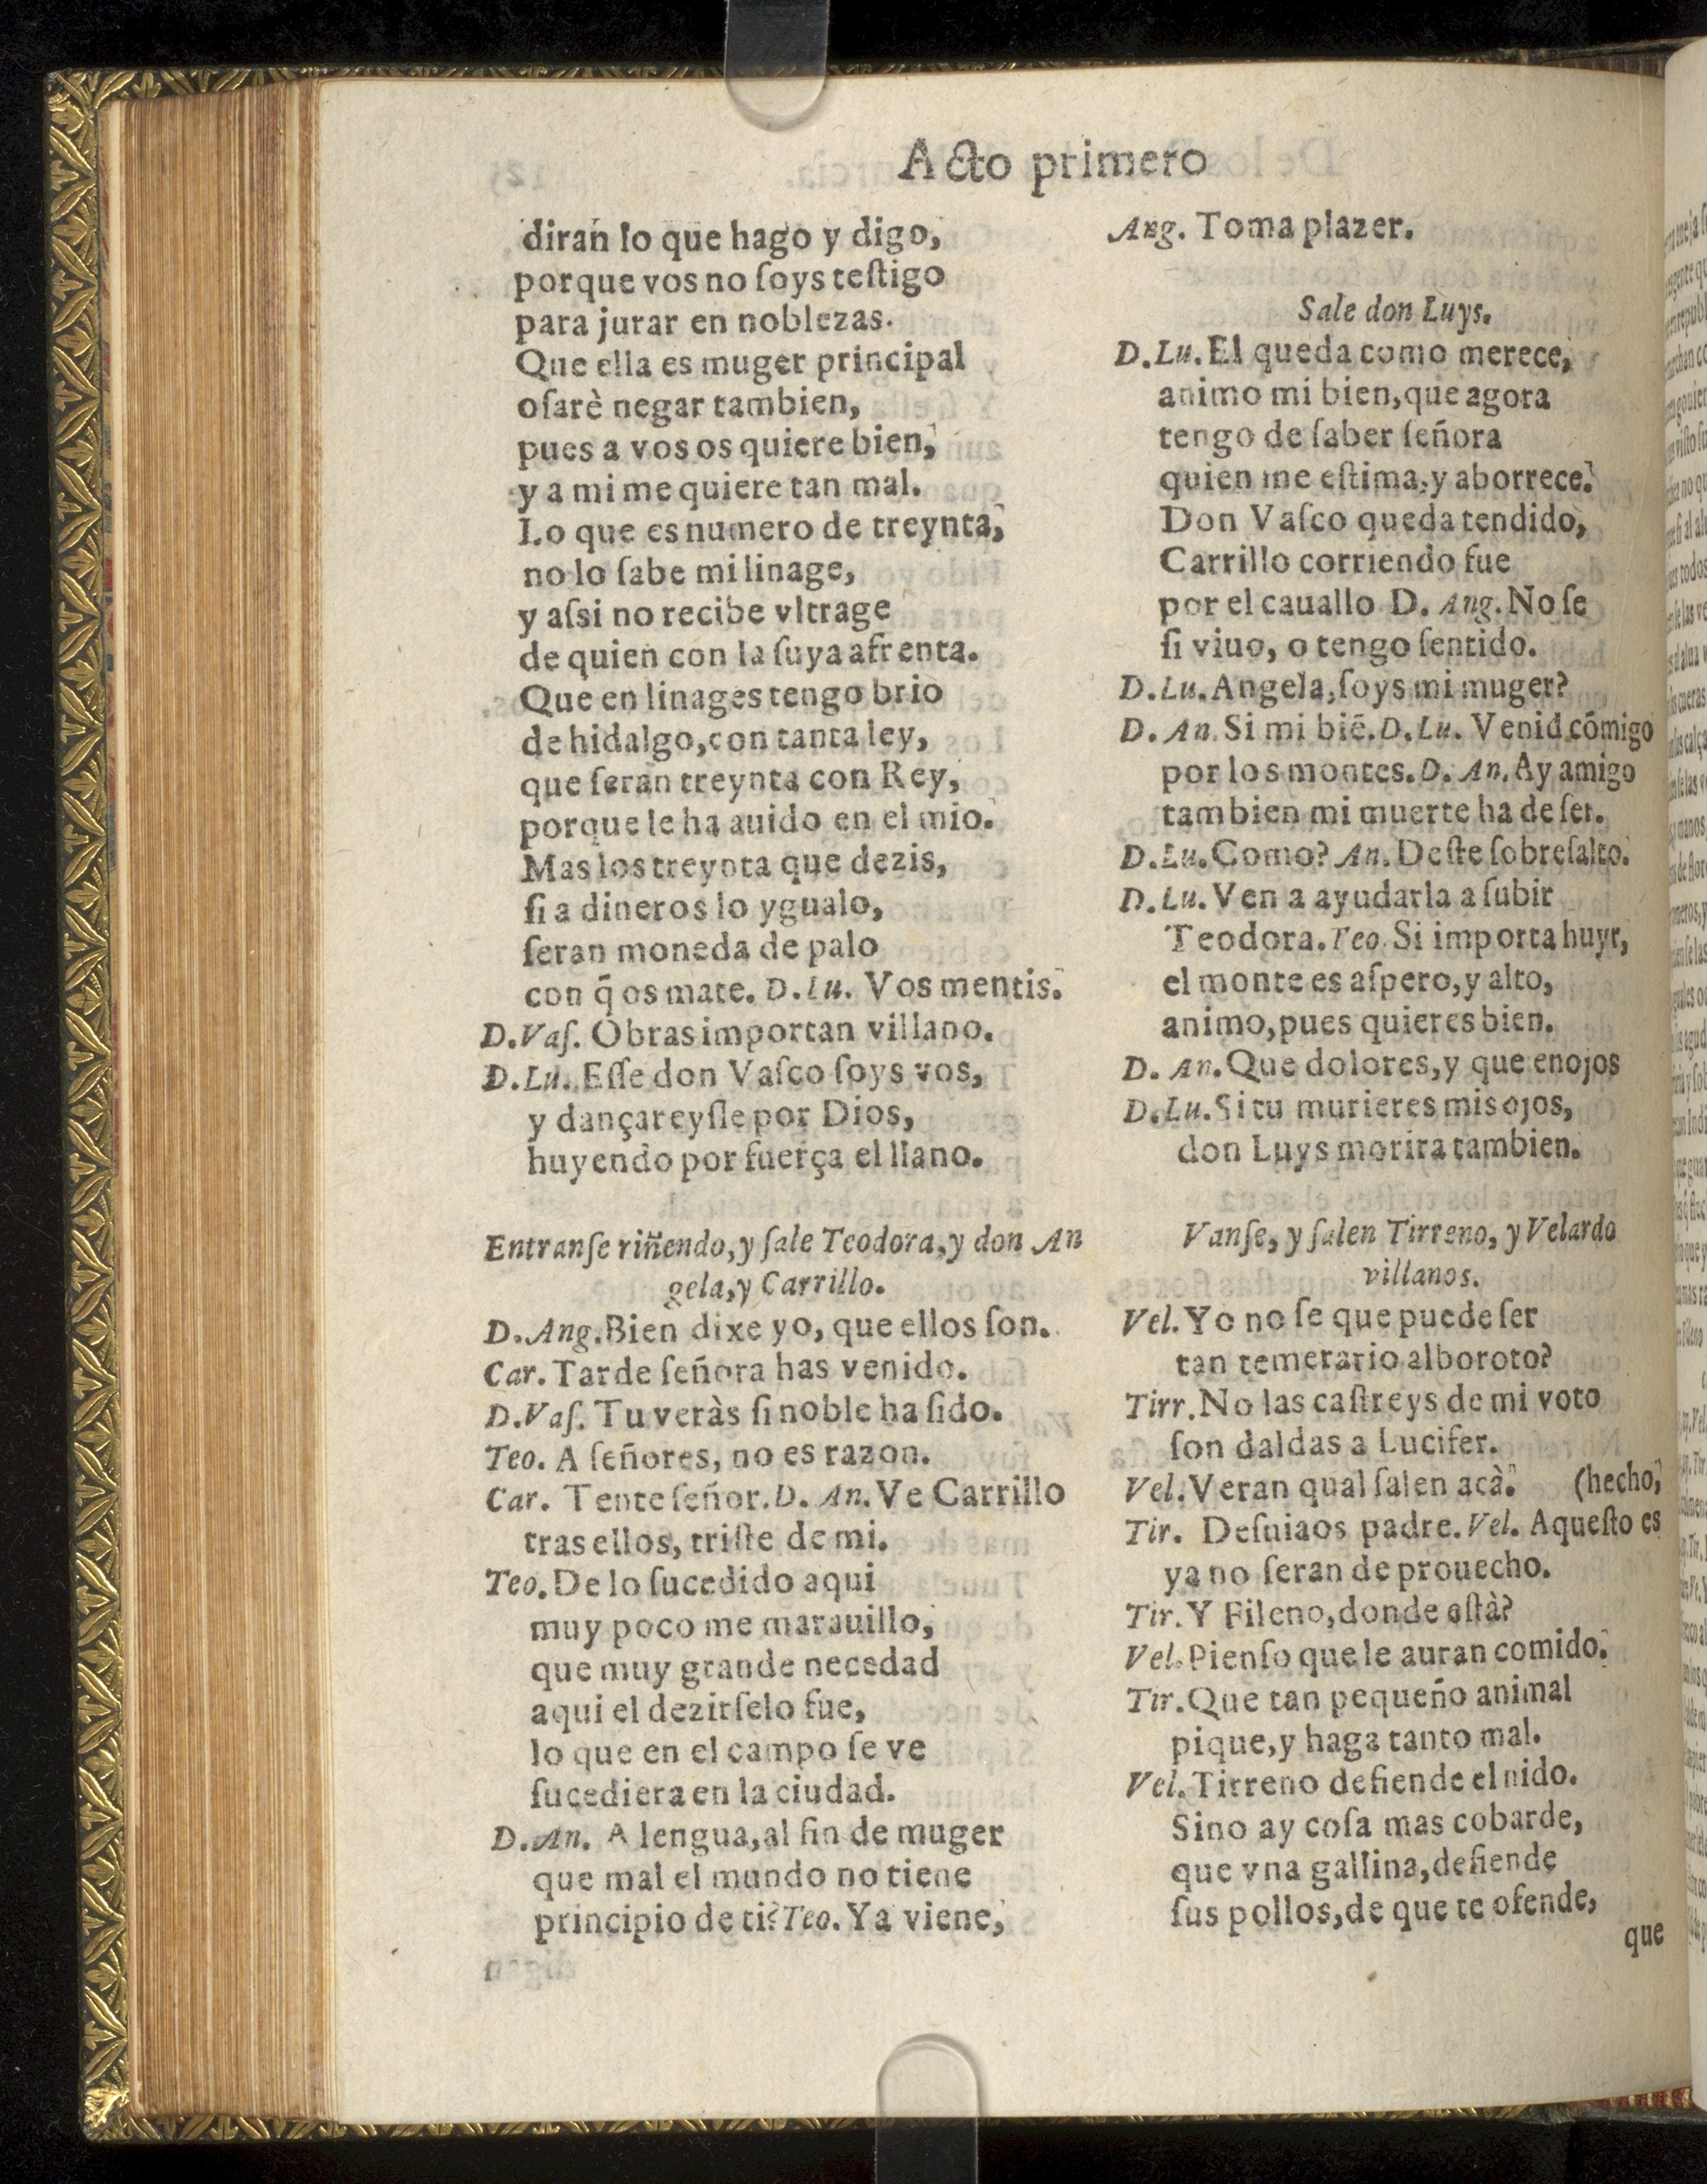 Acto primero
diran lo que hago y digo,
porque vos no ſoys teſtigo
para jurar en noblezas.
Que ella es muger principal
oſarè negar tambien,
pues a vos os quiere bien,
y a mi me quiere tan mal.
Lo que es numero de treynta,
no lo ſabe mi linage,
y aſsi no recibe vltrage
de quien con la ſuya afrenta.
Que en linages tengo brio
de hidalgo, con tanta ley,
que ſeran treynta con Rey,
porque le ha auido en el mio.
Mas los treynta que dezis,
ſi a dineros lo ygualo,
ſeran moneda de palo
con q̃ os mate. D.Lu. Vos mentis.
D.Vaſ. Obras importan villano.
D.Lu. Eſſe don Vaſco ſoys vos,
y dançareyſle por Dios,
huyendo por fuerça el llano.
Entranſe riñendo, y ſale Teodora, y don An
gela, y Carrillo.
D.Ang. Bien dixe yo, que ellos ſon.
Car. Tarde ſeñora has venido.
D.Vaſ. Tu veràs ſi noble ha ſido.
Teo. A ſeñores, no es razon.
Car. Tente ſeñor. D. An. Ve Carrillo
tras ellos, triſte de mi.
Teo. De lo ſucedido aqui
muy poco me marauillo,
que muy grande necedad
aqui el dezirſelo fue,
lo que en el campo ſe ve
ſucediera en la ciudad.
D. An. A lengua, al fin de muger
que mal el mundo no tiene
principio de ti? Teo. Ya viene,
Ang. Toma plazer.
Sale don Luys.
D.Lu. El queda como merece,
animo mi bien, que agora
tengo de ſaber ſeñora
quien me eſtima, y aborrece.
Don Vaſco queda tendido,
Carrillo corriendo fue
por el cauallo D. Ang. No ſe
ſi viuo, o tengo ſentido.
D.Lu. Angela, ſoys mi muger?
D. An. Si mi biẽ. D.Lu. Venid cõmigo
por los montes. D. An. Ay amigo
tambien mi muerte ha de ſer.
D.Lu. Como? An. Deſte ſobreſalto.
D.Lu. Ven a ayudarla a ſubir
Teodora. Teo. Si importa huyr,
el monte es aſpero, y alto,
animo, pues quieres bien.
D. An. Que dolores, y que enojos
D.Lu. Si tu murieres mis ojos,
don Luys morira tambien.
Vanſe, y ſalen Tirreno, y Velardo
villanos.
Vel. Yo no ſe que puede ſer
tan temerario alboroto?
Tirr. No las caſtreys de mi voto
ſon daldas a Lucifer.
Vel. Veran qual ſalen acà. (hecho,
Tir. Deſuiaos padre. Vel. Aqueſto es
ya no ſeran de prouecho.
Tir. Y Fileno, donde eſtà?
Vel. Pienſo que le auran comido.
Tir. Que tan pequeño animal
pique, y haga tanto mal.
Vel. Tirreno defiende el nido.
Sino ay coſa mas cobarde,
que vna gallina, defiende
ſus pollos, de que te ofende,
que